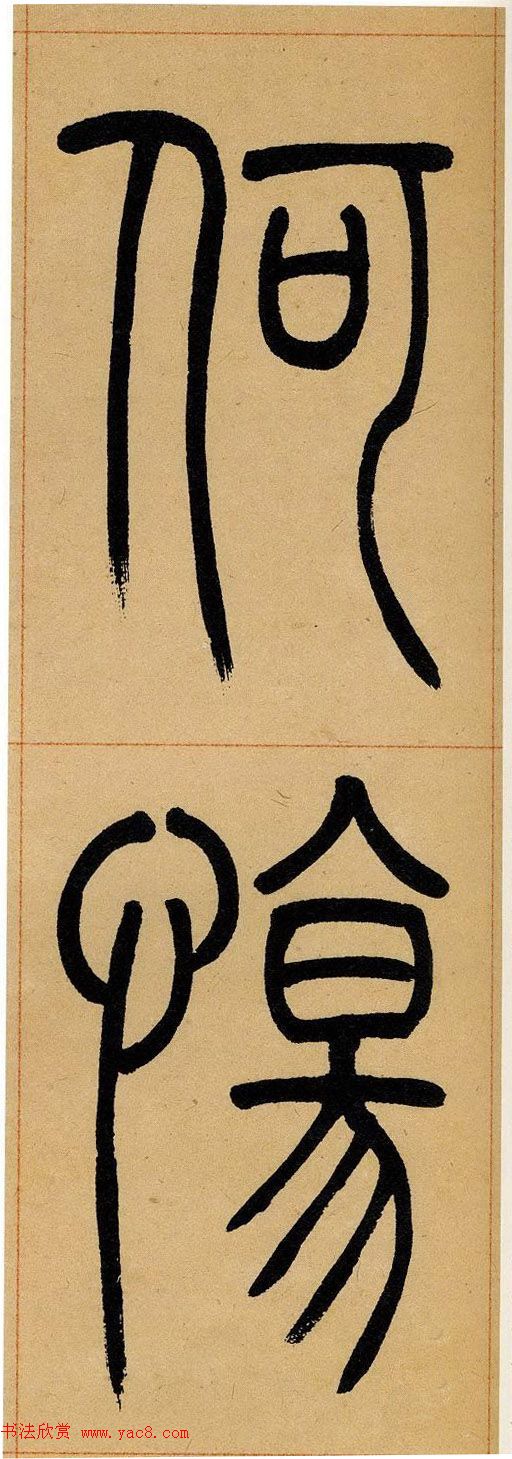 何
慯
书法欣赏 www.yac8.com